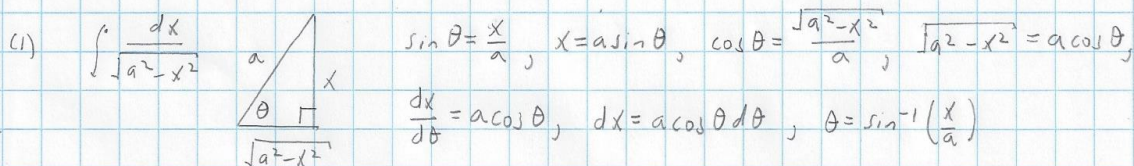 (1) ∫ dx/√(a²-x²)
a
x
θ
√(a²-x²)
sin θ = x/a, x = a sin θ, cos θ = √(a²-x²)/a, √(a²-x²) = a cos θ,
dx/dθ = a cos θ, dx = a cos θ dθ, θ = sin⁻¹(x/a)